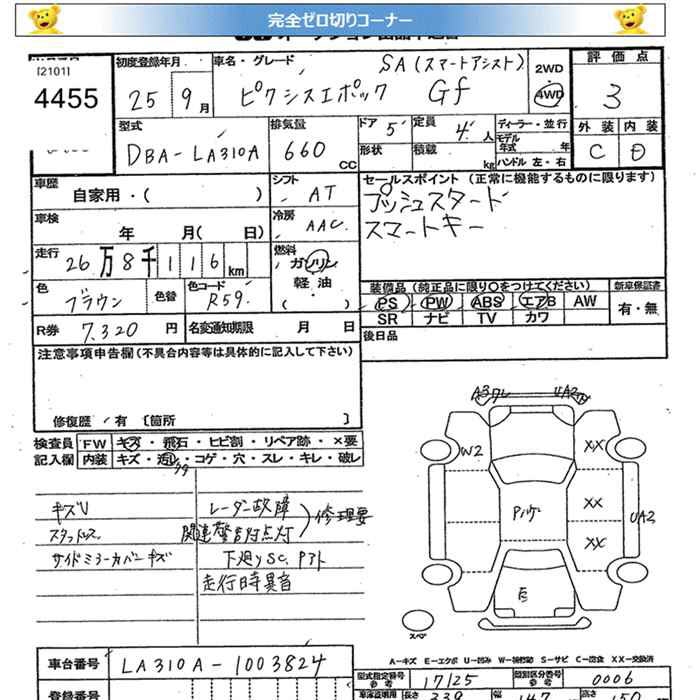 完全ゼロ切りコーナー
[2101]
4455
初度登録年月
25 9月
車名・グレード
SA(スマートアシスト)
ピクシスエポック Gf
2WD
4WD
評価点
3
外装 内装
C D
型式
DBA-LA310A
排気量
660 CC
ドア 5
定員 4人
形状
積載 kg
ディーラー・並行
モデル年式 年
ハンドル 左・右
車歴
自家用・( )
シフト AT
車検
年 月( 日)
冷房 AAC
走行
26万8千116km
燃料
ガソリン
軽油
( )
色
ブラウン
色替
色コード
R59
R券 7,320円
名変通知期限 月 日
セールスポイント(正常に機能するものに限ります)
プッシュスタード
スマートキー
装備品(純正品に限り○をつけてください)
PS PW ABS エアB AW
SR ナビ TV カワ
新車保証書
有・無
後日品
注意事項申告欄(不具合内容等は具体的に記入して下さい)
修復歴・有 〔箇所 〕
検査員記入欄
FW キズ・飛石・ヒビ割・リペア跡・×要
内装 キズ・汚レ・コゲ・穴・スレ・キレ・破レ
キズU
スタッドレス
サイドミラーカバーキズ
レーダー故障
関連警告灯点灯
修理要
下廻りSC、Pアト
走行時異音
A3ワレ
UA2
W2
XX
XX
XX
UA2
スペア
A=キズ E=エクボ U=凹み W=補修跡 S=サビ C=腐食 XX=交換済
車台番号
LA310A-1003824
型式指定番号 参考
17125
類別区分番号 参考
0006
登録番号